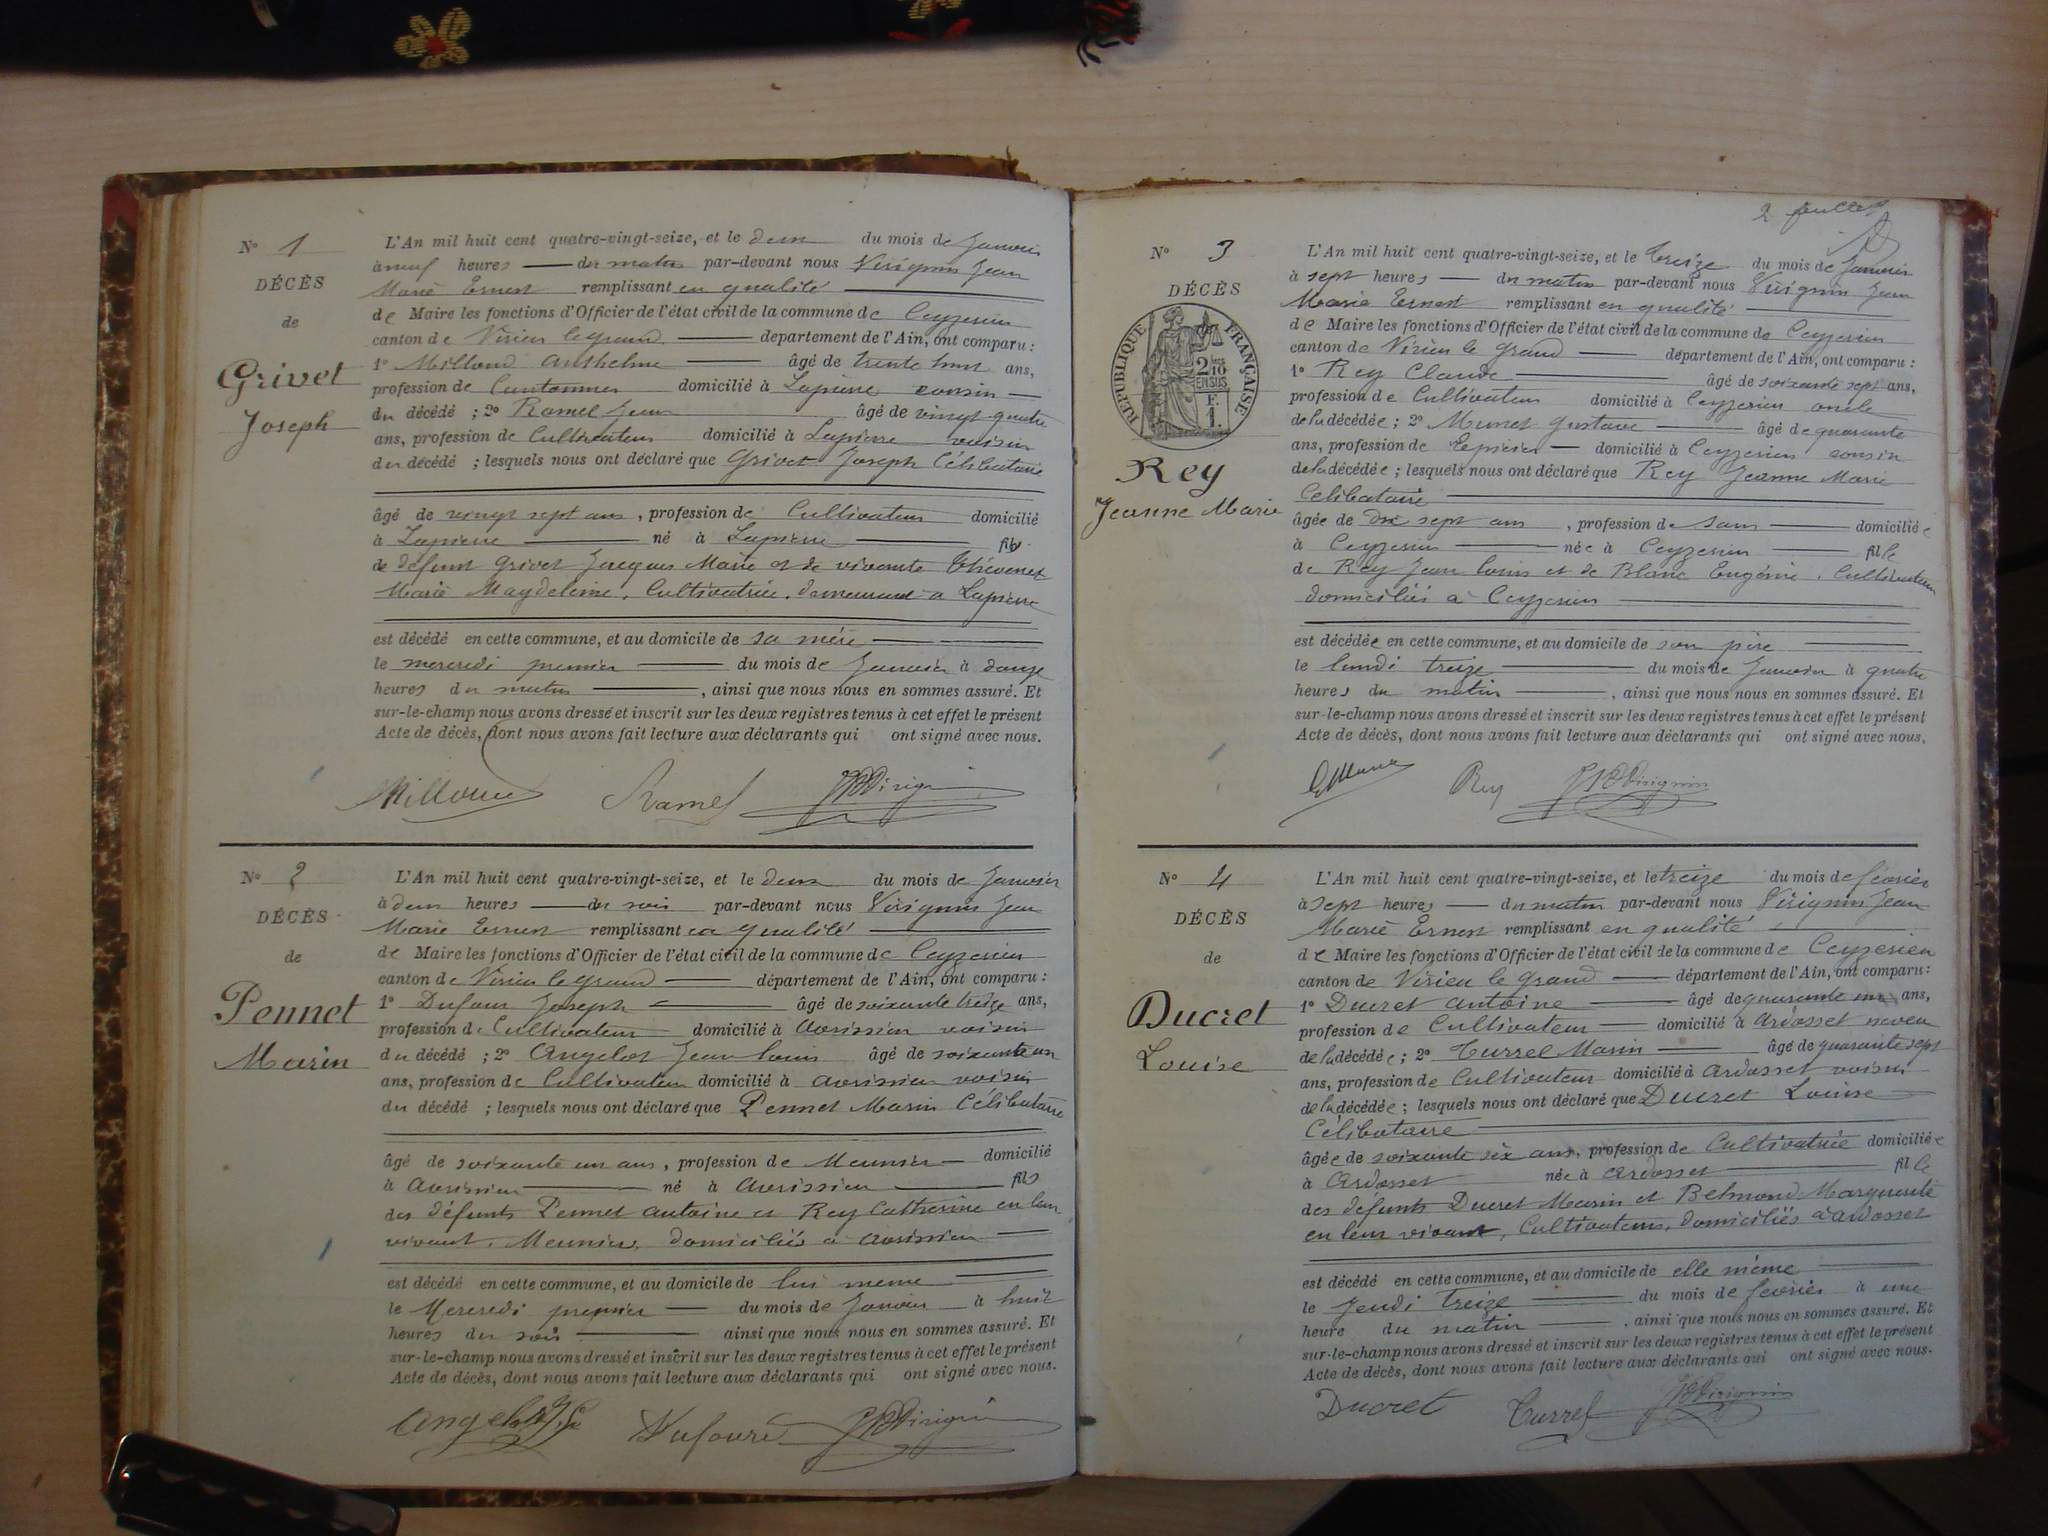 N° 1
DÉCÈS
de
Grivet
Joseph
L'An mil huit cent quatre-vingt-seize, et le deux du mois de Janvier
à neuf heures du matin par-devant nous Virignin Jean
Marie Ernest remplissant en qualité
de Maire les fonctions d'Officier de l'état civil de la commune de Ceyzerieu
canton de Virieu le grand département de l'Ain, ont comparu :
1° Milloud Anthelme âgé de trente huit ans,
profession de Cantonnier domicilié à Lapierre cousin
du décédé ; 2° Ramel Jean âgé de vingt quatre
ans, profession de Cultivateur domicilié à Lapierre voisin
du décédé ; lesquels nous ont déclaré que Grivet Joseph Célibataire
âgé de vingt sept ans, profession de Cultivateur domicilié
à Lapierre né à Lapierre fils
de défunt Grivet Jacques Marie et de vivante Thévenet
Marie Magdeleine, Cultivatrice, demeurant à Lapierre
est décédé en cette commune, et au domicile de sa mère
le mercredi premier du mois de Janvier à onze
heures du matin, ainsi que nous nous en sommes assuré. Et
sur-le-champ nous avons dressé et inscrit sur les deux registres tenus à cet effet le présent
Acte de décès, dont nous avons fait lecture aux déclarants qui ont signé avec nous.
Milloud Ramel Virignin
N° 2
DÉCÈS
de
Pennet
Marin
L'An mil huit cent quatre-vingt-seize, et le deux du mois de Janvier
à deux heures du soir par-devant nous Virignin Jean
Marie Ernest remplissant en qualité
de Maire les fonctions d'Officier de l'état civil de la commune de Ceyzerieu
canton de Virieu le grand département de l'Ain, ont comparu :
1° Dufour Joseph âgé de soixante treize ans,
profession de Cultivateur domicilié à Avrissieu voisin
du décédé ; 2° Angelot Jean Louis âgé de soixante un
ans, profession de Cultivateur domicilié à Avrissieu voisin
du décédé ; lesquels nous ont déclaré que Pennet Marin Célibataire
âgé de soixante un ans, profession de Meunier domicilié
à Avrissieu né à Avrissieu fils
des défunts Pennet Antoine et Rey Catherine en leur
vivant, Meuniers, domiciliés à Avrissieu
est décédé en cette commune, et au domicile de lui meme
le Mercredi premier du mois de Janvier à huit
heures du soir ainsi que nous nous en sommes assuré. Et
sur-le-champ nous avons dressé et inscrit sur les deux registres tenus à cet effet le présent
Acte de décès, dont nous avons fait lecture aux déclarants qui ont signé avec nous.
Angelot Dufour Virignin
2 feuillet
N° 3
DÉCÈS
de
RÉPUBLIQUE FRANÇAISE
2/10
EN SUS
F.
1.
Rey
Jeanne Marie
L'An mil huit cent quatre-vingt-seize, et le treize du mois de Janvier
à sept heures du matin par-devant nous Virignin Jean
Marie Ernest remplissant en qualité
de Maire les fonctions d'Officier de l'état civil de la commune de Ceyzerieu
canton de Virieu le grand département de l'Ain, ont comparu :
1° Rey Claude âgé de soixante sept ans,
profession de Cultivateur domicilié à Ceyzerieu oncle
de la décédée ; 2° Munet Gustave âgé de quarante
ans, profession de Epicier domicilié à Ceyzerieu cousin
de la décédée ; lesquels nous ont déclaré que Rey Jeanne Marie
Celibataire
âgée de dix sept ans, profession de sans domiciliée
à Ceyzerieu née à Ceyzerieu fille
de Rey Jean Louis et de Blanc Eugénie, Cultivateurs
domiciliés à Ceyzerieu
est décédée en cette commune, et au domicile de son père
le lundi treize du mois de Janvier à quatre
heures du matin, ainsi que nous nous en sommes assuré. Et
sur-le-champ nous avons dressé et inscrit sur les deux registres tenus à cet effet le présent
Acte de décès, dont nous avons fait lecture aux déclarants qui ont signé avec nous.
Rey Virignin
N° 4
DÉCÈS
de
Ducret
Louise
L'An mil huit cent quatre-vingt-seize, et le treize du mois de février
à sept heures du matin par-devant nous Virignin Jean
Marie Ernest remplissant en qualité
de Maire les fonctions d'Officier de l'état civil de la commune de Ceyzerieu
canton de Virieu le grand département de l'Ain, ont comparu :
1° Ducret Antoine âgé de quarante un ans,
profession de Cultivateur domicilié à Ardosset neveu
de la décédée ; 2° Turrel Marin âgé de quarante sept
ans, profession de Cultivateur domicilié à Ardosset voisin
de la décédée ; lesquels nous ont déclaré que Ducret Louise
Célibataire
âgée de soixante six ans, profession de Cultivatrice domiciliée
à Ardosset née à Ardosset fille
des défunts Ducret Marin et Belmond Marguerite
en leur vivant, Cultivateurs, domiciliés à Ardosset
est décédé en cette commune, et au domicile de elle même
le Jeudi treize du mois de février à une
heure du matin, ainsi que nous nous en sommes assuré. Et
sur-le-champ nous avons dressé et inscrit sur les deux registres tenus à cet effet le présent
Acte de décès, dont nous avons fait lecture aux déclarants qui ont signé avec nous.
Ducret Turrel Virignin